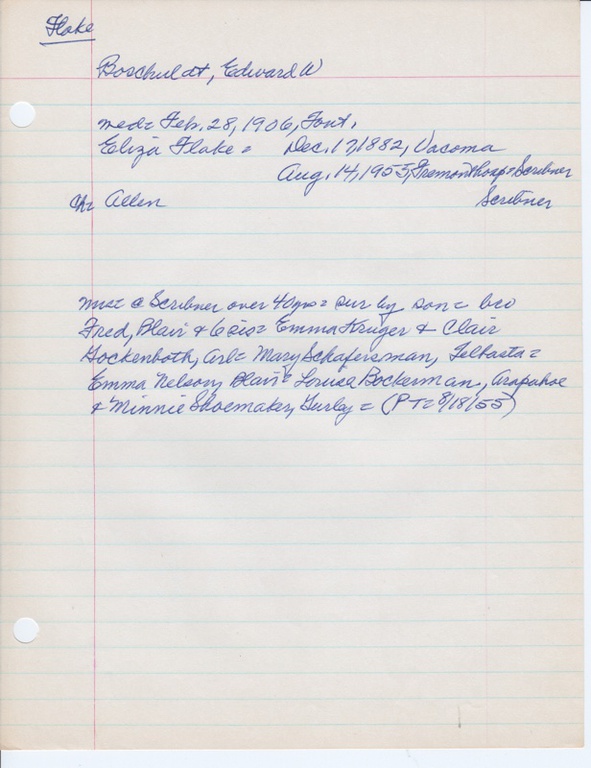 Flake
Boschuldt, Edward W
med= Feb. 28, 1906, Font.
Eliza Flake = Dec. 17, 1882, Vacoma
Aug. 14, 1955, Fremont hosp = Scribner
Ch= Allen Scribner
mvs= @ Scribner over 40yrs = sur by son = bro
Fred, Blair & 6 sis = Emma Kruger & Clair
Hockenboth, Arl = Mary Schafersman, Telbasta =
Emma Nelson, Blair = Louise Bockerman, Arapahoe
& Minnie Shoemaker, Gurley = (PT = 8/18/55)